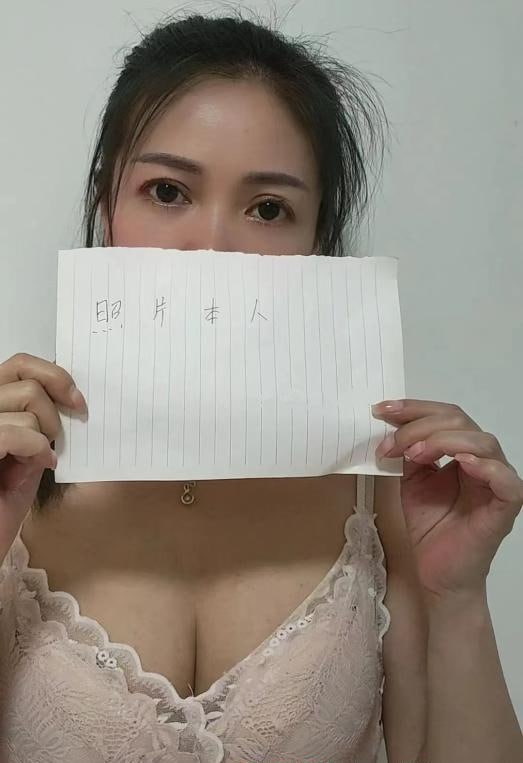 照片本人